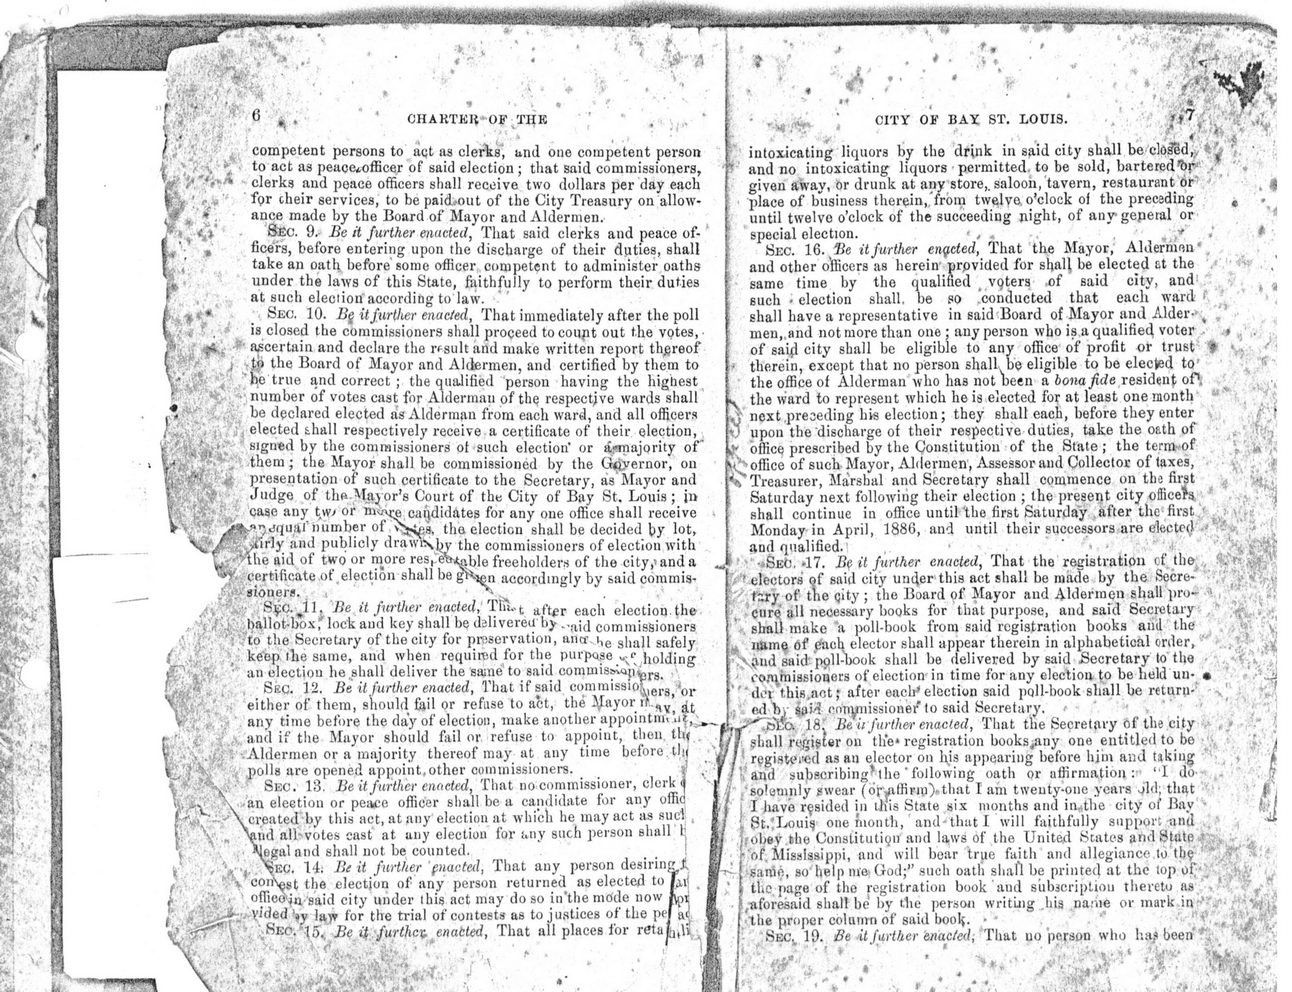 6
CHARTER OF THE
competent persons to act as clerks, and one competent person
to act as peace officer of said election; that said commissioners,
clerks and peace officers shall receive two dollars per day each
for their services, to be paid out of the City Treasury on allow-
ance made by the Board of Mayor and Aldermen.
SEC. 9. Be it further enacted, That said clerks and peace of-
ficers, before entering upon the discharge of their duties, shall
take an oath before some officer competent to administer oaths
under the laws of this State, faithfully to perform their duties
at such election according to law.
SEC. 10. Be it further enacted, That immediately after the poll
is closed the commissioners shall proceed to count out the votes,
ascertain and declare the result and make written report thereof
to the Board of Mayor and Aldermen, and certified by them to
be true and correct; the qualified person having the highest
number of votes cast for Alderman of the respective wards shall
be declared elected as Alderman from each ward, and all officers
elected shall respectively receive a certificate of their election,
signed by the commissioners of such election or a majority of
them; the Mayor shall be commissioned by the Governor, on
presentation of such certificate to the Secretary, as Mayor and
Judge of the Mayor's Court of the City of Bay St. Louis; in
case any two or more candidates for any one office shall receive
an equal number of votes, the election shall be decided by lot,
fairly and publicly drawn by the commissioners of election with
the aid of two or more respectable freeholders of the city, and a
certificate of election shall be given accordingly by said commis-
sioners.
SEC. 11. Be it further enacted, That after each election the
ballot-box, lock and key shall be delivered by said commissioners
to the Secretary of the city for preservation, and he shall safely
keep the same, and when required for the purpose of holding
an election he shall deliver the same to said commissioners.
SEC. 12. Be it further enacted, That if said commissioners, or
either of them, should fail or refuse to act, the Mayor may, at
any time before the day of election, make another appointment,
and if the Mayor should fail or refuse to appoint, then the
Aldermen or a majority thereof may at any time before the
polls are opened appoint other commissioners.
SEC. 13. Be it further enacted, That no commissioner, clerk
an election or peace officer shall be a candidate for any offic
created by this act, at any election at which he may act as such
and all votes cast at any election for any such person shall b
legal and shall not be counted.
SEC. 14. Be it further enacted, That any person desiring t
contest the election of any person returned as elected to
office in said city under this act may do so in the mode now
vided by law for the trial of contests as to justices of the
SEC. 15. Be it further enacted, That all places for
CITY OF BAY ST. LOUIS.
7
intoxicating liquors by the drink in said city shall be closed,
and no intoxicating liquors permitted to be sold, bartered or
given away, or drunk at any store, saloon, tavern, restaurant or
place of business therein, from twelve o'clock of the preceding
until twelve o'clock of the succeeding night, of any general or
special election.
SEC. 16. Be it further enacted, That the Mayor, Aldermen
and other officers as herein provided for shall be elected at the
same time by the qualified voters of said city, and
such election shall be so conducted that each ward
shall have a representative in said Board of Mayor and Alder-
men, and not more than one; any person who is a qualified voter
of said city shall be eligible to any office of profit or trust
therein, except that no person shall be eligible to be elected to
the office of Alderman who has not been a bona fide resident of
the ward to represent which he is elected for at least one month
next preceding his election; they shall each, before they enter
upon the discharge of their respective duties, take the oath of
office prescribed by the Constitution of the State; the term of
office of such Mayor, Aldermen, Assessor and Collector of taxes,
Treasurer, Marshal and Secretary shall commence on the first
Saturday next following their election; the present city officers
shall continue in office until the first Saturday after the first
Monday in April, 1886, and until their successors are elected
and qualified.
SEC. 17. Be it further enacted, That the registration of the
electors of said city under this act shall be made by the Secre-
tary of the city; the Board of Mayor and Aldermen shall pro-
cure all necessary books for that purpose, and said Secretary
shall make a poll-book from said registration books and the
name of each elector shall appear therein in alphabetical order,
and said poll-book shall be delivered by said Secretary to the
commissioners of election in time for any election to be held un-
der this act; after each election said poll-book shall be return-
ed by said commissioner to said Secretary.
SEC. 18. Be it further enacted, That the Secretary of the city
shall register on the registration books any one entitled to be
registered as an elector on his appearing before him and taking
and subscribing the following oath or affirmation: "I do
solemnly swear (or affirm) that I am twenty-one years old, that
I have resided in this State six months and in the city of Bay
St. Louis one month, and that I will faithfully support and
obey the Constitution and laws of the United States and State
of Mississippi, and will bear true faith and allegiance to the
same, so help me God;" such oath shall be printed at the top of
the page of the registration book and subscription thereto as
aforesaid shall be by the person writing his name or mark in
the proper column of said book.
SEC. 19. Be it further enacted, That no person who has been